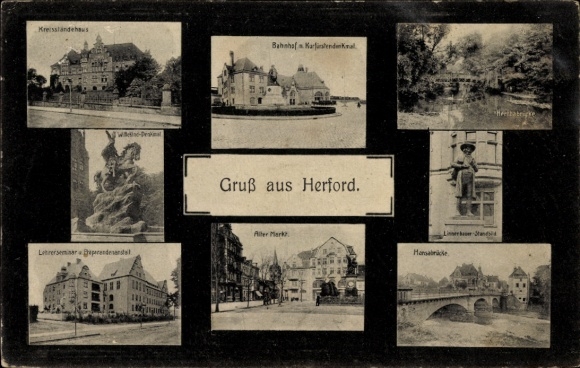 Kreisständehaus
Bahnhof m. Kurfürstendenkmal.
Wilhelms-Denkmal
Gruß aus Herford.
Linnenbauer-Standbild
Lehrerseminar u. Präparandenanstalt
Alter Markt.
Hansabrücke.